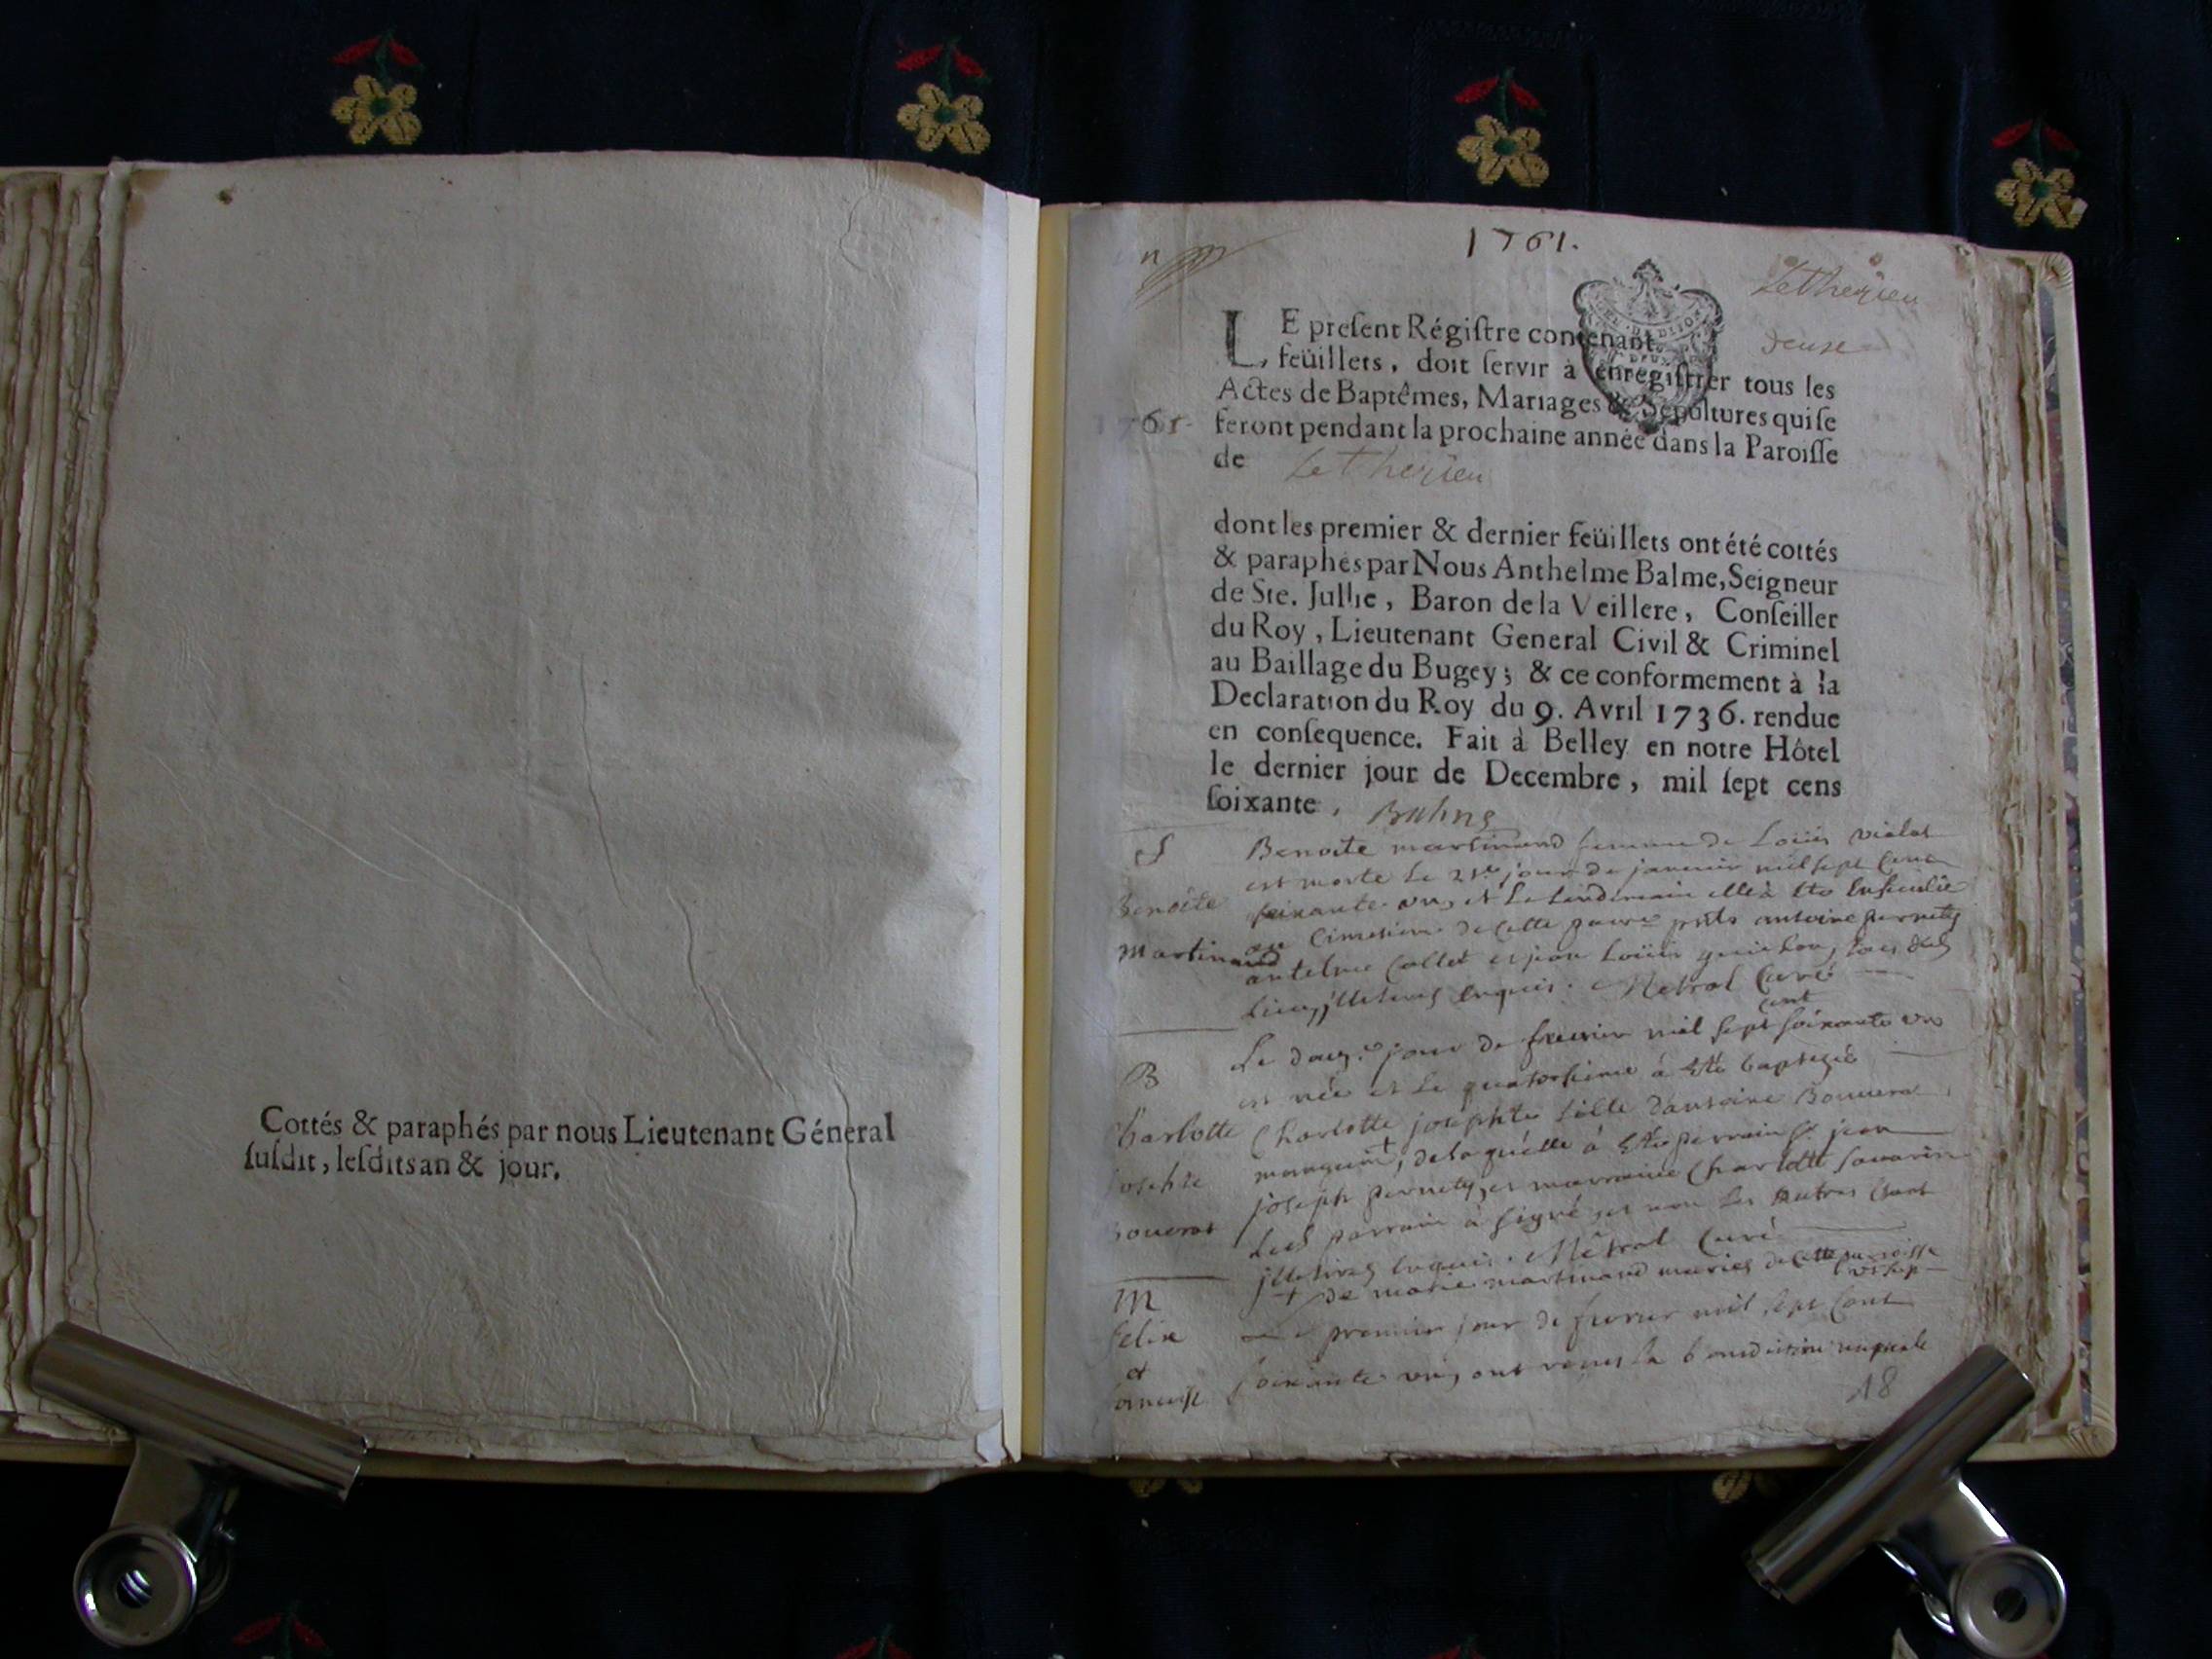 Cottés & paraphés par nous Lieutenant Géneral
ſuſdit, leſdits an & jour.
1761.
Letherieu
LE preſent Régiſtre contenant
feüillets, doit ſervir à enregiſtrer tous les
Actes de Baptêmes, Mariages & Sepultures qui ſe
feront pendant la prochaine année dans la Paroiſſe
de Letherieu
dont les premier & dernier feüillets ont été cottés
& paraphés par Nous Anthelme Balme, Seigneur
de Ste. Jullie, Baron de la Veillere, Conſeiller
du Roy, Lieutenant General Civil & Criminel
au Baillage du Bugey; & ce conformement à la
Declaration du Roy du 9. Avril 1736. rendue
en conſequence. Fait à Belley en notre Hôtel
le dernier jour de Decembre, mil ſept cens
ſoixante.
S
Benoite
Martinand
Benoite martinand femme de Loüis violet
est morte Le 21e jour de janvier mil sept cens
soixante un, et Le Lendemain elle à été
au Cimetiere de cette antoine pernety
antelme Collet et jean Loüis
enquis. Metral Curé
Le jour de fevrier mil sept cent soixante un
est née et Le quatorsieme à été baptizée
B
Charlotte
Charlotte josephte fille d'antoine Bouvera
de laquelle à été parrain Sr jean
joseph pernety, et marraine Charlotte savarin
Led parrain à signé et non les autres
enquis. Métral Curé
+ de marie martinand mariés de cette paroisse
M
Felix
et
Le premier jour de fevrier mil sept cent
soixante un, ont reçus la benediction nuptiale
18